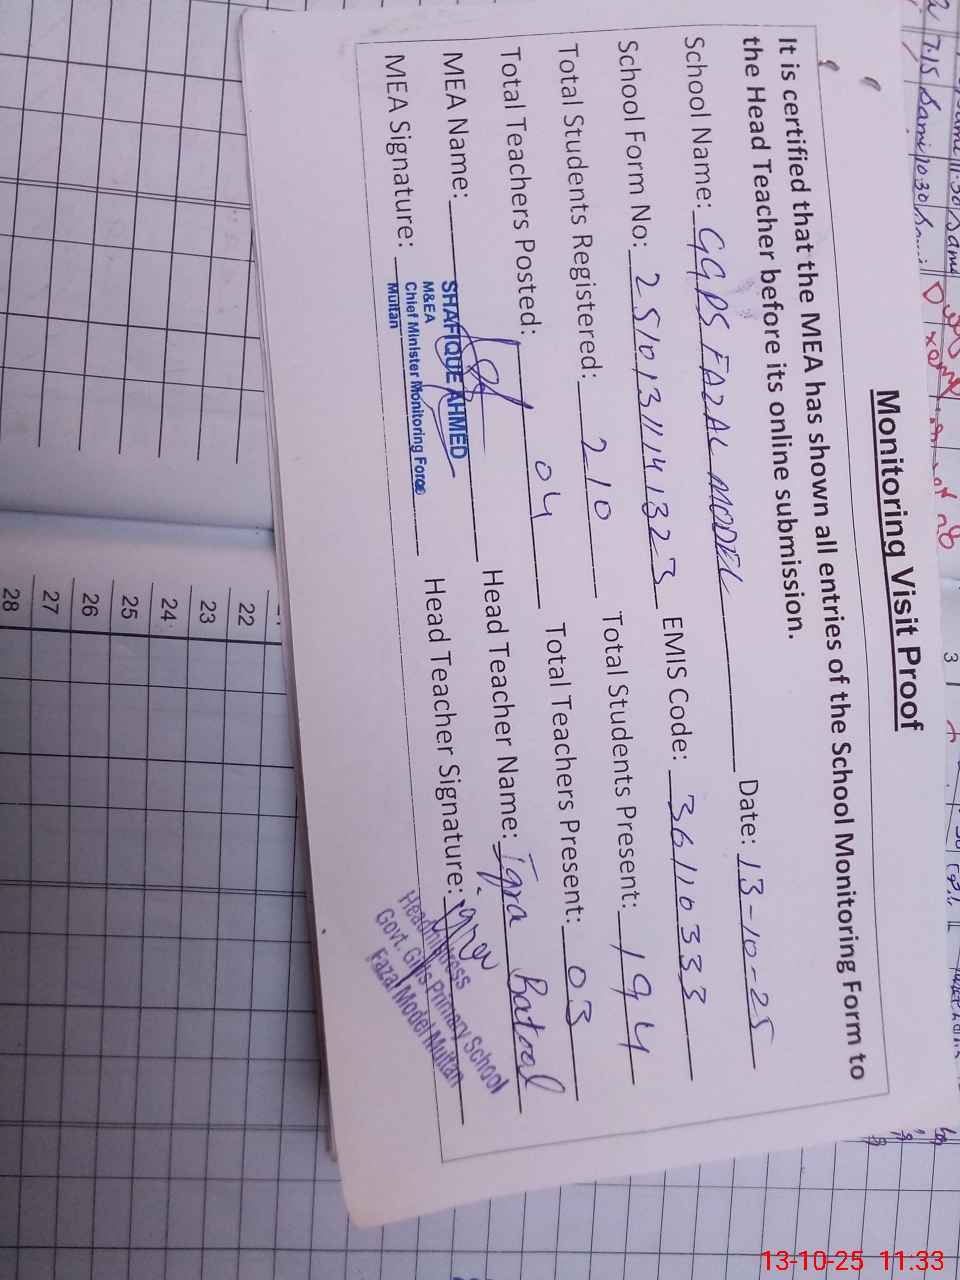 Monitoring Visit Proof
It is certified that the MEA has shown all entries of the School Monitoring Form to
the Head Teacher before its online submission.
School Name: GGPS FAZAL MODEL Date: 13-10-25
School Form No: 25101311141323 EMIS Code: 36110333
Total Students Registered: 210 Total Students Present: 194
Total Teachers Posted: 04 Total Teachers Present: 03
MEA Name: SHAFIQUE AHMED Head Teacher Name: Iqra Batool
M&EA
Chief Minister Monitoring Force
Multan
MEA Signature: Head Teacher Signature: Iqra
Headmistress
Govt. Girls Primary School
Fazal Model Multan
7:15 Sami 10:30
22
23
24
25
26
27
28
3
13-10-25 11:33